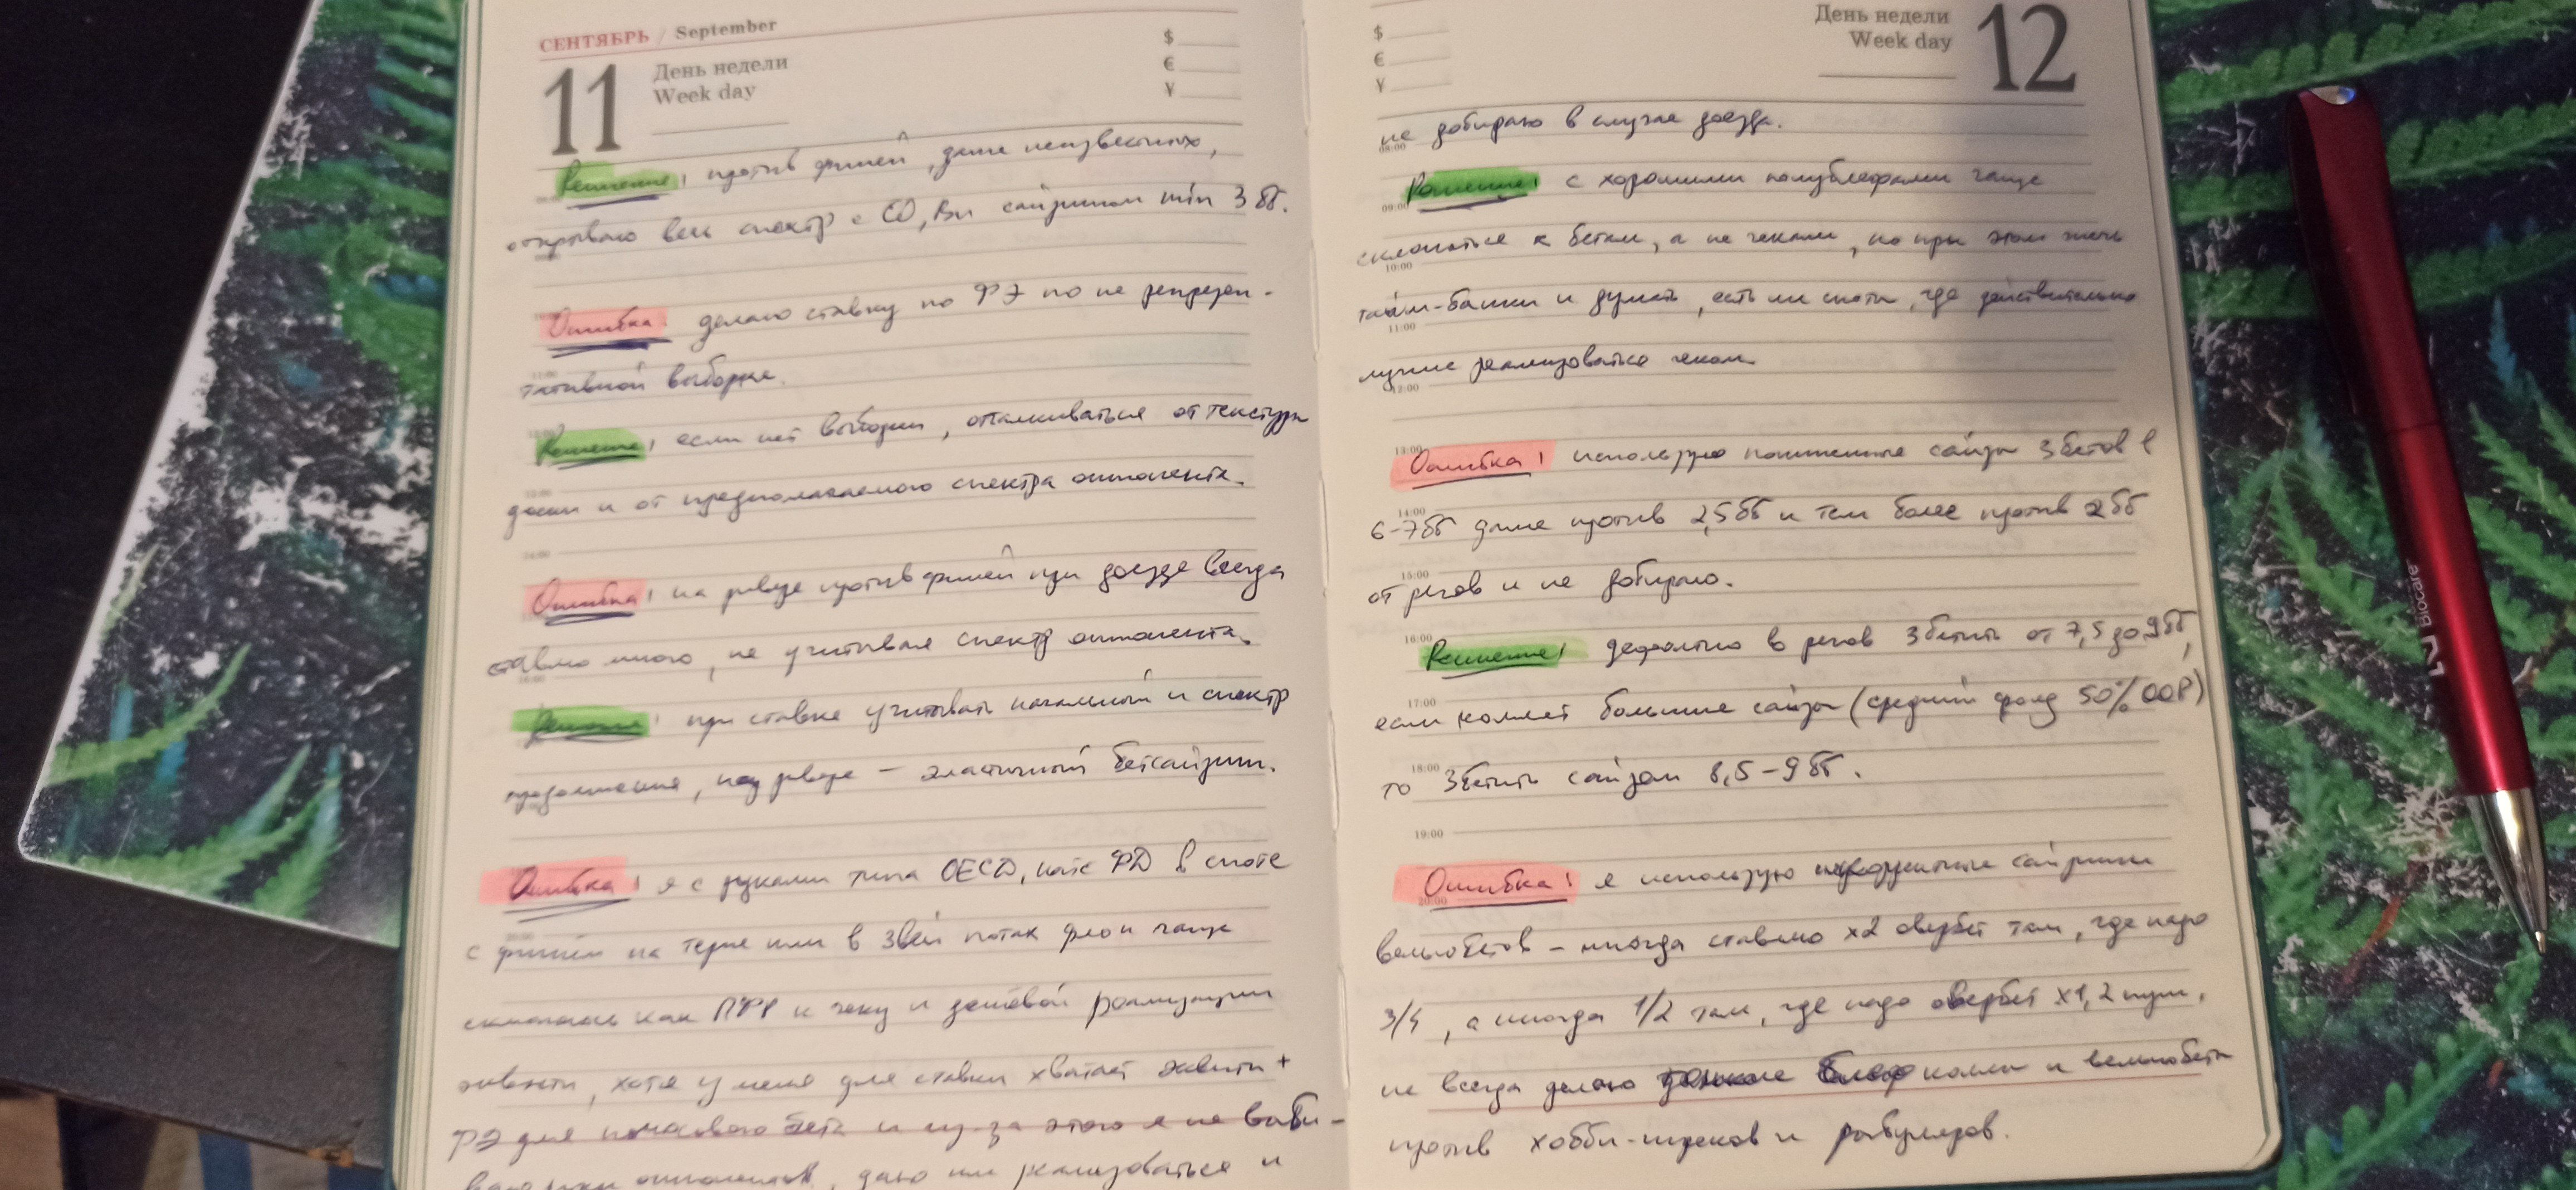 СЕНТЯБРЬ / September
11
День недели
Week day
$
€
¥
Решение! против фишей, даже неизвестных,
открываю весь спектр с CO, Bu сайзингом min 3 бб.
Ошибка: делаю ставку по ФЭ по не репрезен-
тативной выборке.
Решение! если нет выборки, отталкиваться от текстуры
доски и от предполагаемого спектра оппонента.
Ошибка! на ривере против фишей при доезде всегда
ставлю много, не учитывая спектр оппонента.
Решение! при ставке учитывать начальный и спектр
продолжения, на ривере - эластичный бетсайзинг.
Ошибка! я с руками типа OESD, натс ФД в споте
с фишём на терне или в 3вей потах флоп чаще
склоняюсь как ПФР к чеку и дешёвой реализации
эквити, хотя у меня для ставки хватает эквити +
ФЭ для полосового бета и из-за этого я не выби-
ваю руки оппонентов, даю им реализоваться и
$
€
¥
День недели
Week day
12
не добираю в случае доезда.
08:00
Решение! с хорошими полублефами чаще
09:00
склоняться к бетам, а не чекам, но при этом жечь
10:00
тайм-банки и думать, есть ли споты, где действительно
11:00
лучше реализоваться чеком
12:00
13:00
Ошибка! использую пониженные сайзы 3бетов в
14:00
6-7бб даже против 2,5бб и тем более против 2бб
15:00
от регов и не добираю.
16:00
Решение! дефолтно в регов 3бетить от 7,5 до 9бб,
17:00
если коллят большие сайзы (средний фолд 50% OOP)
18:00
то 3бетить сайзом 8,5-9бб.
19:00
Ошибка! я использую сайзинги
20:00
вельюбетов - иногда ставлю x2 овербет там, где надо
3/4, а иногда 1/2 там, где надо овербет x1,2 пуш,
не всегда делаю тонкие блеф коллы и вельюбеты
против хобби-игроков и рабуляров.
Biocare